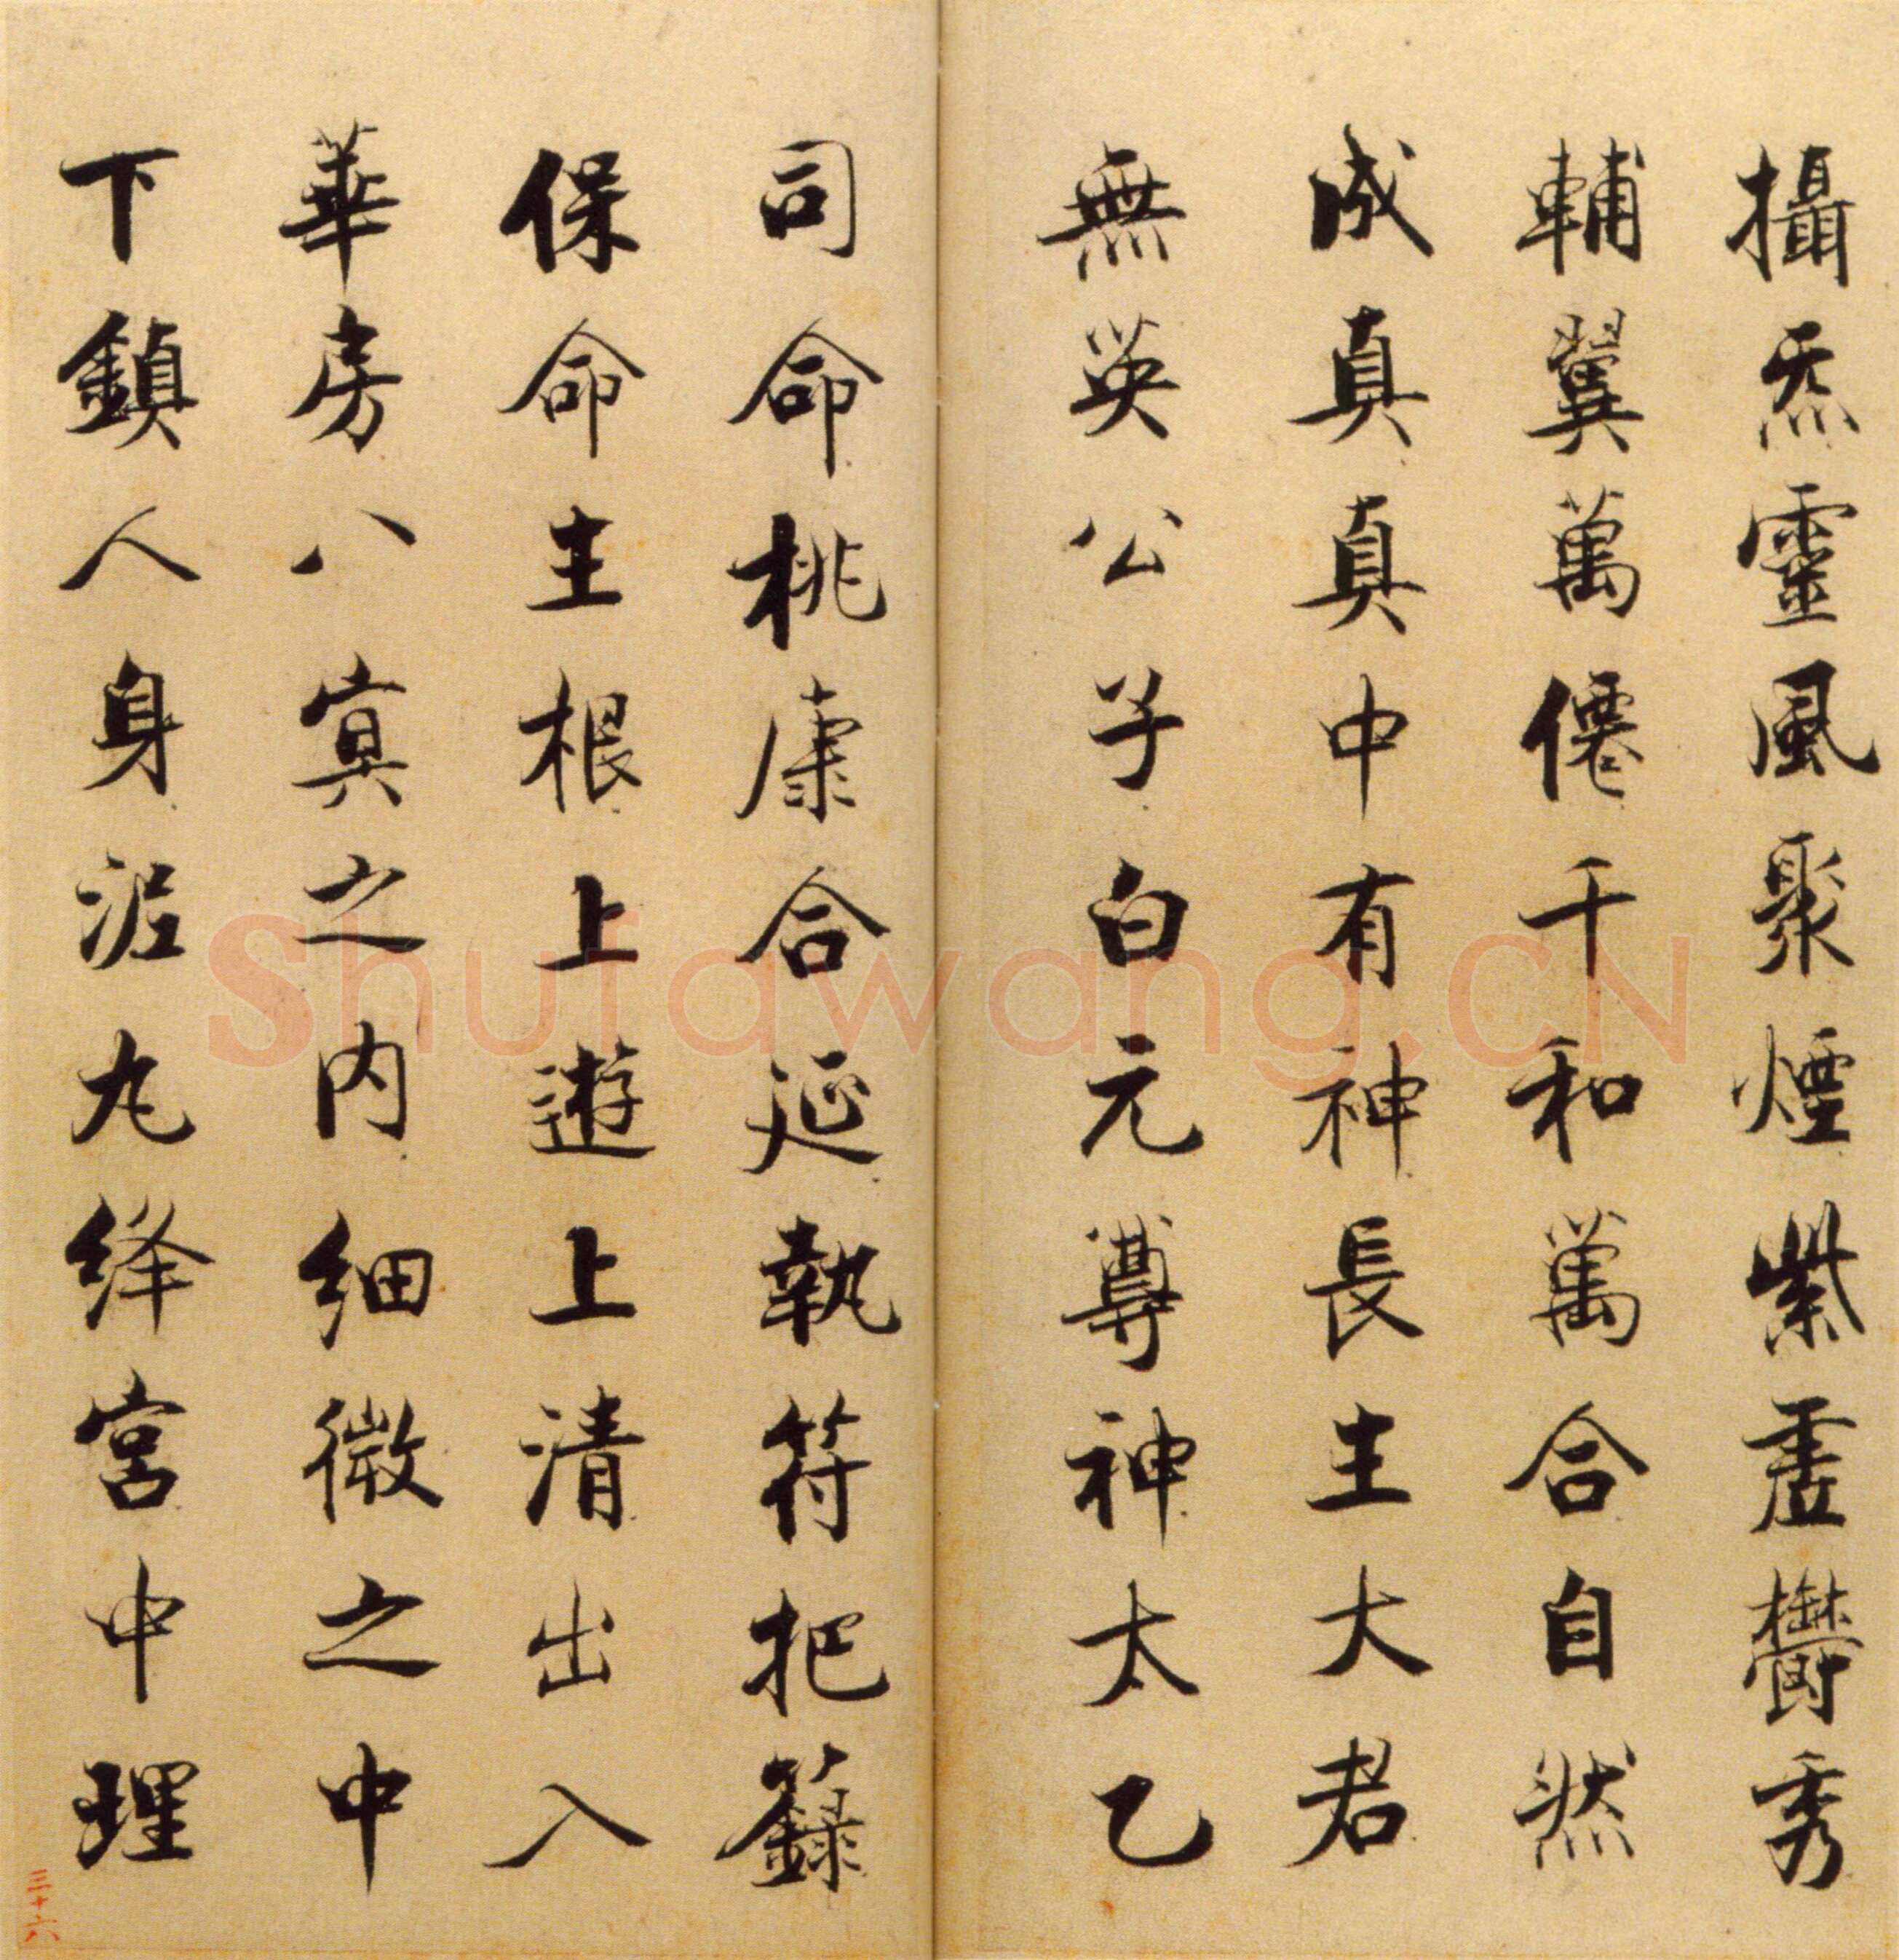 攝炁靈風聚煙紫虛欝秀
輔翼萬僊千和萬合自然
成真真中有神長生大君
無英公子白元尊神太乙
司命桃康合延執符把籙
保命生根上遊上清出入
華房八冥之内細微之中
下鎮人身泥丸絳宮中理
三十六
Shufawang.CN